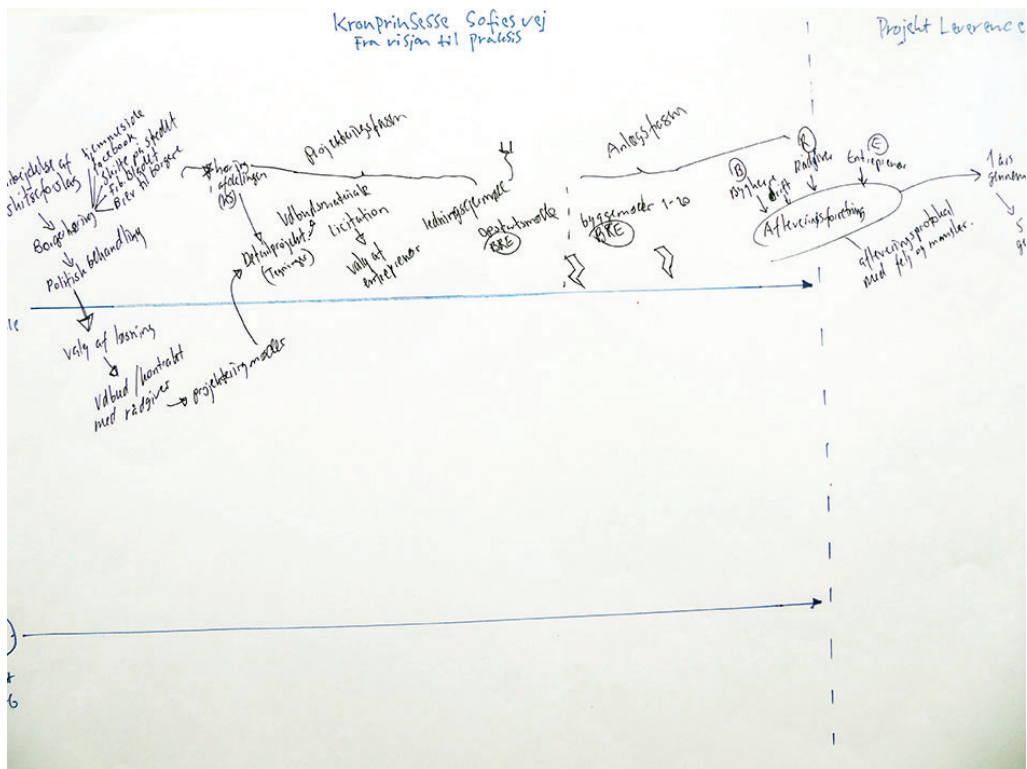 Kronprinsesse Sofies vej
Fra vision til praksis
Projekt Leverence
af hjemmeside
facebook
skilte på stedet
Frb. bladet
Brev til borgere
Borgerhøring
Politisk behandling
valg af løsning
Udbud/kontrakt
med rådgiver
projekteringsmøder
høring
afdelingen
Projekteringsfasen
Detailprojekt
(Tegninger)
Udbudsmateriale
licitation
valg af
entreprenør
ledningsejermøde
Opstartsmøde
BRE
Anlægsfasen
byggemøder 1-20
BRE
B
Bygherre
drift
R
Rådgiver
E
Entreprenør
Afleveringsforretning
afleveringsprotokol
med fejl og mangler.
1 års
gennem
5